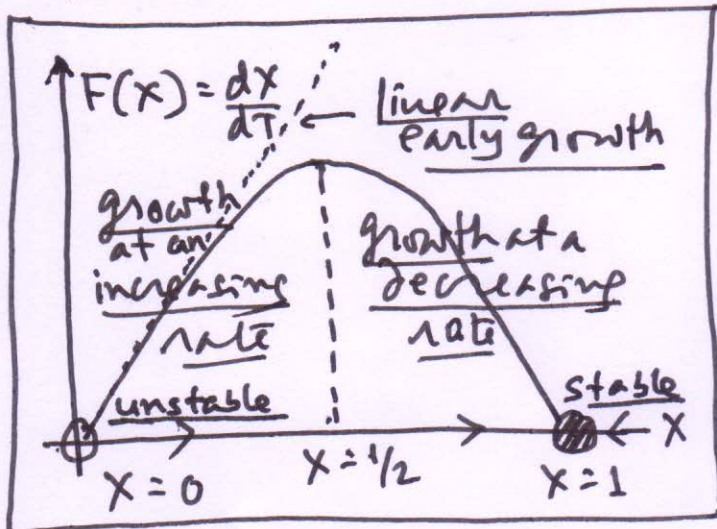 F(X) = dX/dT
linear
early growth
growth
at an
increasing
rate
growth at a
decreasing
rate
unstable
stable
X
X = 0
X = 1/2
X = 1